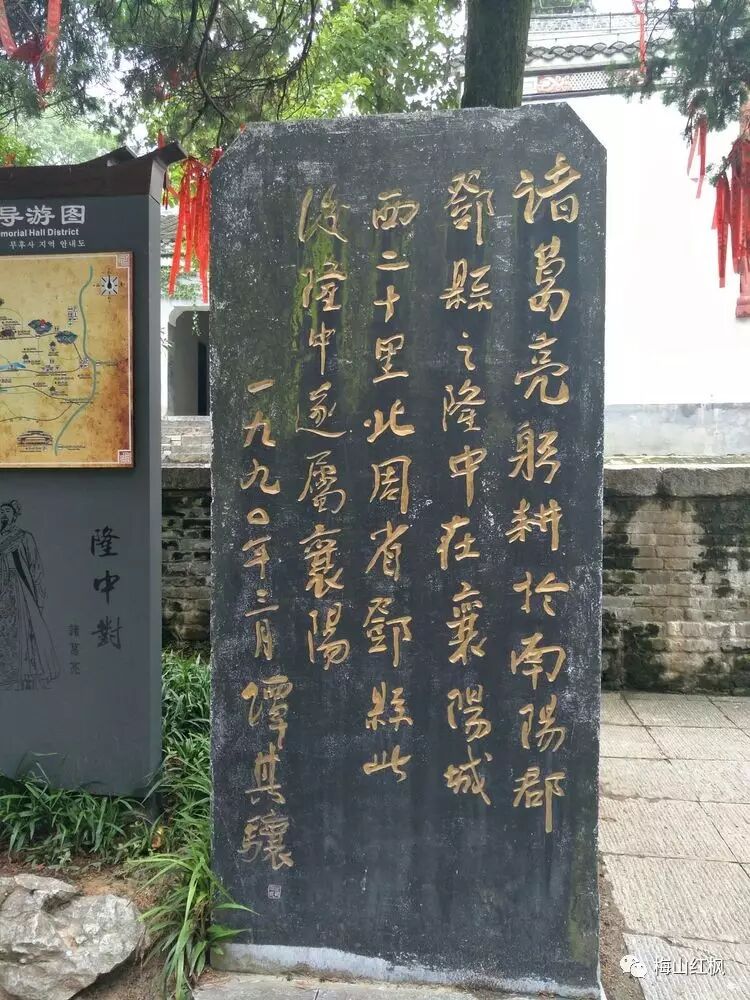 諸葛亮躬耕於南陽郡
鄧縣之隆中在襄陽城
西二十里北周省鄧縣此
後隆中遂屬襄陽
一九九〇年三月 譚其驤
导游图
morial Hall District
무후사 지역 안내도
隆中對
諸葛亮
梅山红枫